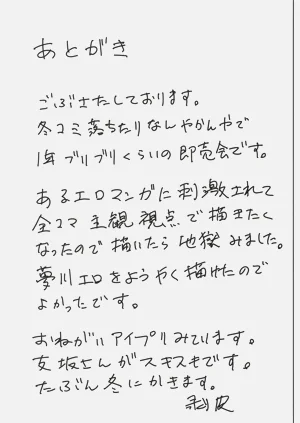 あとがき
ごぶさたしております。
冬コミ落ちたりなんやかんやで
1年ブリブリくらいの即売会です。
あるエロマンガに刺激されて
全コマ主観視点で描きたく
なったので描いたら地獄みました。
夢川エロをようやく描けたので
よかったです。
おねがいアイプリみています。
女坂さんがスキスキです。
たぶん冬にかきます。